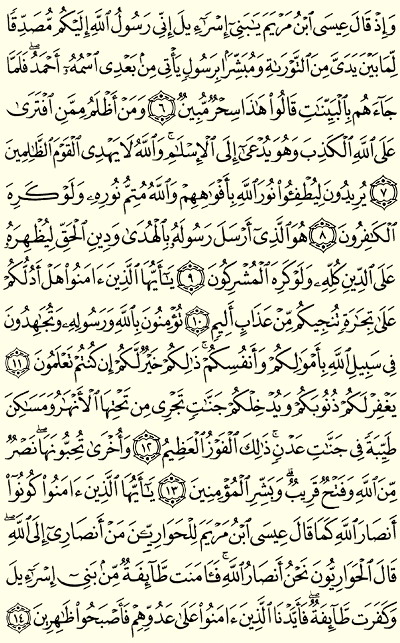 وَإِذْ قَالَ عِيسَى ٱبْنُ مَرْيَمَ يَـٰبَنِىٓ إِسْرَٰٓءِيلَ إِنِّى رَسُولُ ٱللَّهِ إِلَيْكُم مُّصَدِّقًا
لِّمَا بَيْنَ يَدَىَّ مِنَ ٱلتَّوْرَىٰةِ وَمُبَشِّرًۢا بِرَسُولٍ يَأْتِى مِنۢ بَعْدِى ٱسْمُهُۥٓ أَحْمَدُ ۖ فَلَمَّا
جَآءَهُم بِٱلْبَيِّنَـٰتِ قَالُوا۟ هَـٰذَا سِحْرٌ مُّبِينٌ ٦ وَمَنْ أَظْلَمُ مِمَّنِ ٱفْتَرَىٰ
عَلَى ٱللَّهِ ٱلْكَذِبَ وَهُوَ يُدْعَىٰٓ إِلَى ٱلْإِسْلَـٰمِ ۚ وَٱللَّهُ لَا يَهْدِى ٱلْقَوْمَ ٱلظَّـٰلِمِينَ
٧ يُرِيدُونَ لِيُطْفِـُٔوا۟ نُورَ ٱللَّهِ بِأَفْوَٰهِهِمْ وَٱللَّهُ مُتِمُّ نُورِهِۦ وَلَوْ كَرِهَ
ٱلْكَـٰفِرُونَ ٨ هُوَ ٱلَّذِىٓ أَرْسَلَ رَسُولَهُۥ بِٱلْهُدَىٰ وَدِينِ ٱلْحَقِّ لِيُظْهِرَهُۥ
عَلَى ٱلدِّينِ كُلِّهِۦ وَلَوْ كَرِهَ ٱلْمُشْرِكُونَ ٩ يَـٰٓأَيُّهَا ٱلَّذِينَ ءَامَنُوا۟ هَلْ أَدُلُّكُمْ
عَلَىٰ تِجَـٰرَةٍ تُنجِيكُم مِّنْ عَذَابٍ أَلِيمٍ ١٠ تُؤْمِنُونَ بِٱللَّهِ وَرَسُولِهِۦ وَتُجَـٰهِدُونَ
فِى سَبِيلِ ٱللَّهِ بِأَمْوَٰلِكُمْ وَأَنفُسِكُمْ ۚ ذَٰلِكُمْ خَيْرٌ لَّكُمْ إِن كُنتُمْ تَعْلَمُونَ ١١
يَغْفِرْ لَكُمْ ذُنُوبَكُمْ وَيُدْخِلْكُمْ جَنَّـٰتٍ تَجْرِى مِن تَحْتِهَا ٱلْأَنْهَـٰرُ وَمَسَـٰكِنَ
طَيِّبَةً فِى جَنَّـٰتِ عَدْنٍ ۚ ذَٰلِكَ ٱلْفَوْزُ ٱلْعَظِيمُ ١٢ وَأُخْرَىٰ تُحِبُّونَهَا ۖ نَصْرٌ
مِّنَ ٱللَّهِ وَفَتْحٌ قَرِيبٌ ۗ وَبَشِّرِ ٱلْمُؤْمِنِينَ ١٣ يَـٰٓأَيُّهَا ٱلَّذِينَ ءَامَنُوا۟ كُونُوٓا۟
أَنصَارَ ٱللَّهِ كَمَا قَالَ عِيسَى ٱبْنُ مَرْيَمَ لِلْحَوَارِيِّـۧنَ مَنْ أَنصَارِىٓ إِلَى ٱللَّهِ ۖ
قَالَ ٱلْحَوَارِيُّونَ نَحْنُ أَنصَارُ ٱللَّهِ ۖ فَـَٔامَنَت طَّآئِفَةٌ مِّنۢ بَنِىٓ إِسْرَٰٓءِيلَ
وَكَفَرَت طَّآئِفَةٌ ۖ فَأَيَّدْنَا ٱلَّذِينَ ءَامَنُوا۟ عَلَىٰ عَدُوِّهِمْ فَأَصْبَحُوا۟ ظَـٰهِرِينَ ١٤